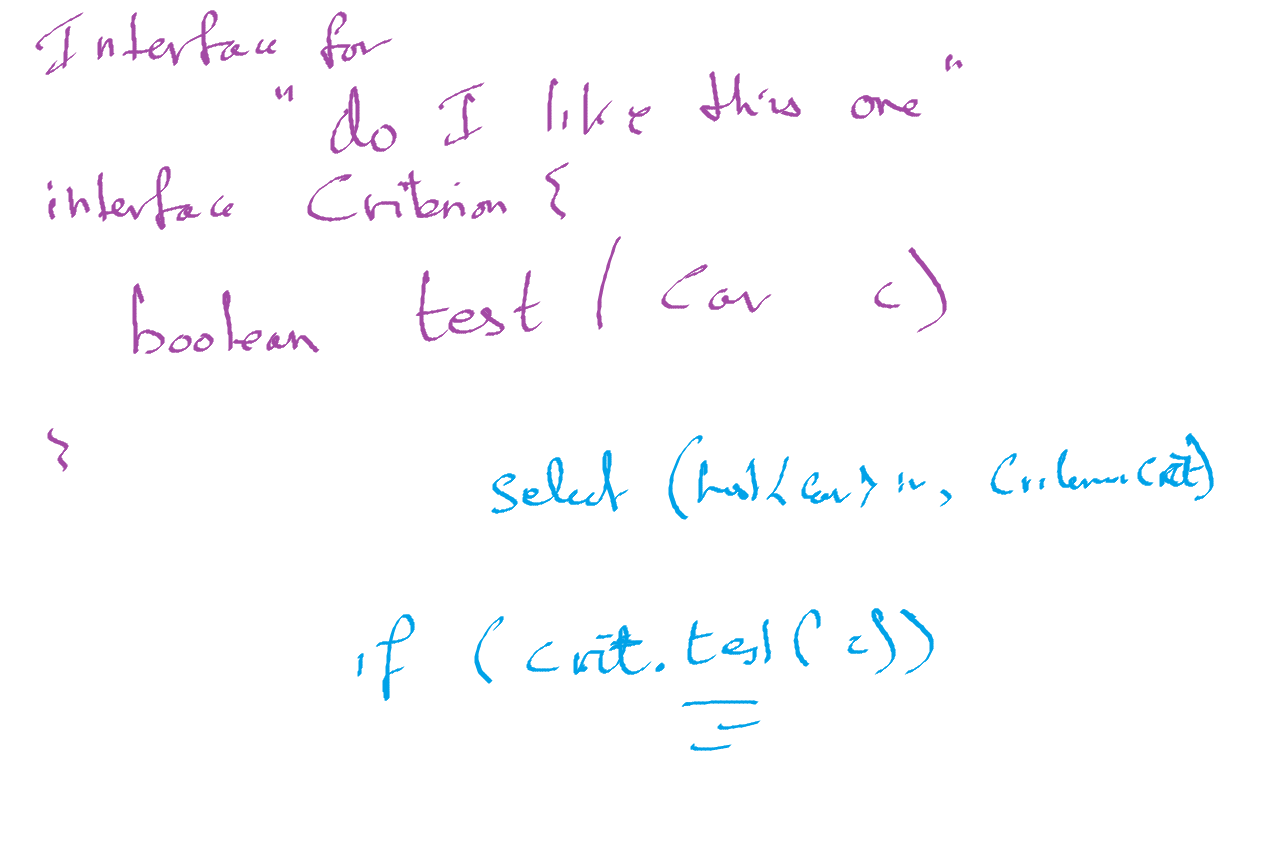 Interface for
" do I like this one "
interface Criterion {
boolean test ( Car c)
}
select (List<Car> in, Criterion crit)
if ( crit.test( c))